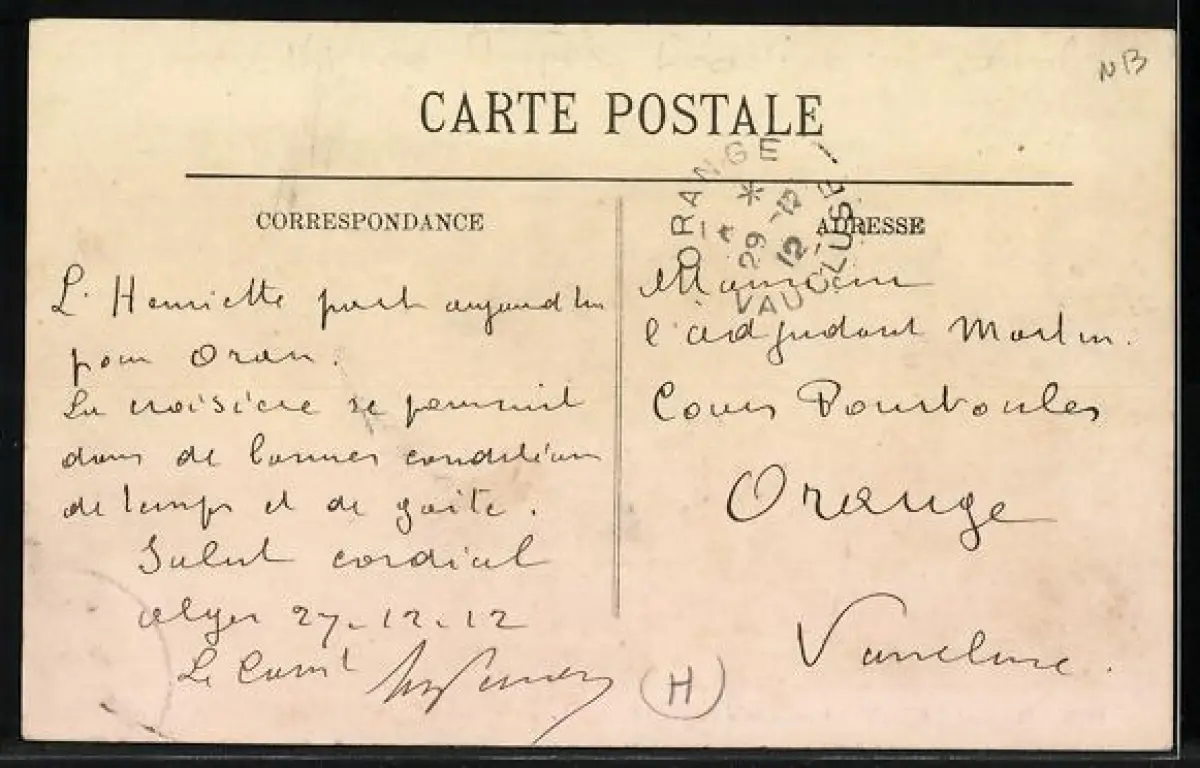 NB
CARTE POSTALE
ORANGE
29 -12
12
VAUCLUSE
CORRESPONDANCE
L'Henriette part aujourd'hui
pour Oran.
La croisière se poursuit
dans de bonnes conditions
de temps et de gaité.
Salut cordial
Alger 27-12-12
Le Comt
ADRESSE
Monsieur
l'adjudant Martin.
Cours Pourtoules
Orange
Vaucluse.
H